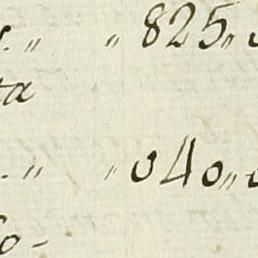 . „ „ 825 „
ta
. „ „ 040 „
o -